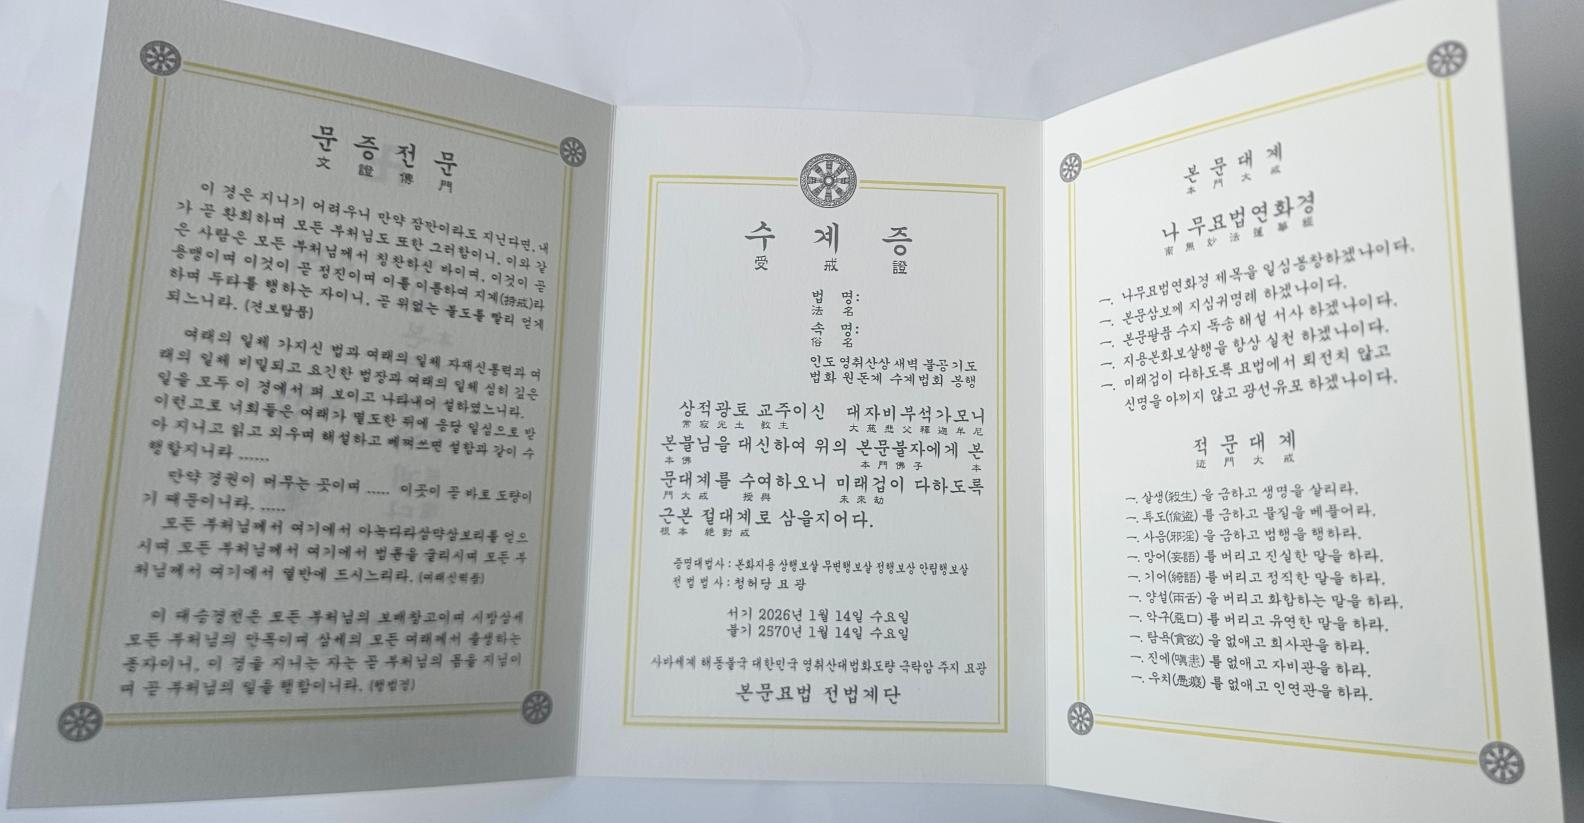 문증전문
文證傳門
이 경은 지니기 어려우니 만약 잠깐이라도 지닌다면, 내
가 곧 환희하며 모든 부처님도 또한 그러함이니, 이와 같
은 사람은 모든 부처님께서 칭찬하신 바이며, 이것이 곧
용맹이며 이것이 곧 정진이며 이를 이름하여 지계(持戒)라
하며 두타를 행하는 자이니, 곧 위없는 불도를 빨리 얻게
되느니라. (견보탑품)
여래의 일체 가지신 법과 여래의 일체 자재신통력과 여
래의 일체 비밀되고 요긴한 법장과 여래의 일체 심히 깊은
일을 모두 이 경에서 펴 보이고 나타내어 설하였느니라.
이런고로 너희들은 여래가 멸도한 뒤에 응당 일심으로 받
아 지니고 읽고 외우며 해설하고 베껴쓰면 설함과 같이 수
행할지니라 ......
만약 경권이 머무는 곳이며 ..... 이곳이 곧 바로 도량이
기 때문이니라. .....
모든 부처님께서 여기에서 아녹다라삼약삼보리를 얻으
시며 모든 부처님께서 여기에서 법륜을 굴리시며 모든 부
처님께서 여기에서 열반에 드시느니라. (여래신력품)
이 대승경전은 모든 부처님의 보배창고이며 시방삼세
모든 부처님의 안목이며 삼세의 모든 여래께서 출생하는
종자이니, 이 경을 지니는 자는 곧 부처님의 몸을 지님이
며 곧 부처님의 일을 행함이니라. (행법경)
수계증
受戒證
법 명:
法名
속 명:
俗名
인도 영취산상 새벽 불공기도
법화 원돈계 수계법회 봉행
상적광토 교주이신 대자비부석가모니
常寂光土 敎主 大慈悲父釋迦牟尼
본불님을 대신하여 위의 본문불자에게 본
本佛 本門佛子 本
문대계를 수여하오니 미래겁이 다하도록
門大戒 授與 未來劫
근본 절대계로 삼을지어다.
根本 絶對戒
증명대법사 : 본화지용 상행보살 무변행보살 정행보살 안립행보살
전 법 법 사 : 청허당 묘 광
서기 2026년 1월 14일 수요일
불기 2570년 1월 14일 수요일
사바세계 해동불국 대한민국 영취산대법화도량 극락암 주지 묘광
본문묘법 전법계단
본문대계
本門大戒
나무묘법연화경
南無妙法蓮華經
一. 나무묘법연화경 제목을 일심봉창하겠나이다.
一. 본문삼보께 지심귀명례 하겠나이다.
一. 본문팔품 수지 독송 해설 서사 하겠나이다.
一. 지용본화보살행을 항상 실천 하겠나이다.
一. 미래겁이 다하도록 묘법에서 퇴전치 않고
신명을 아끼지 않고 광선유포 하겠나이다.
적문대계
迹門大戒
一. 살생(殺生)을 금하고 생명을 살리라.
一. 투도(偸盜)를 금하고 물질을 베풀어라.
一. 사음(邪淫)을 금하고 범행을 행하라.
一. 망어(妄語)를 버리고 진실한 말을 하라.
一. 기어(綺語)를 버리고 정직한 말을 하라.
一. 양설(兩舌)을 버리고 화합하는 말을 하라.
一. 악구(惡口)를 버리고 유연한 말을 하라.
一. 탐욕(貪欲)을 없애고 희사관을 하라.
一. 진에(嗔恚)를 없애고 자비관을 하라.
一. 우치(愚癡)를 없애고 인연관을 하라.